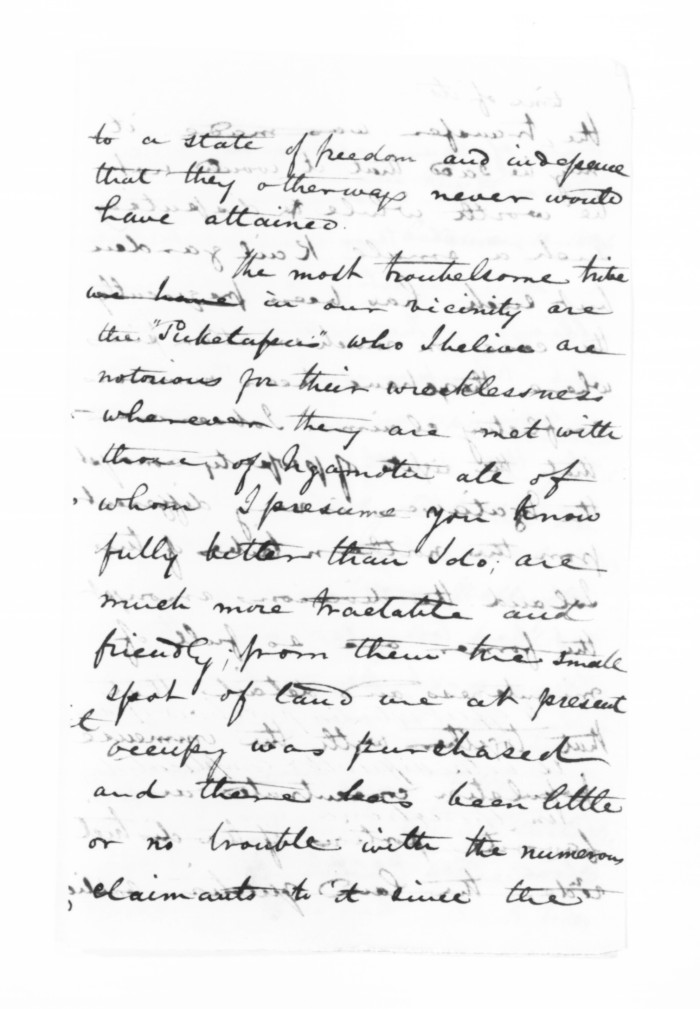 to a state of freedom and indepence
that they otherways never would
have attained.
The most troubelsome tribe
we have in our vicinity are
the "Puketapus" who I belive are
notorious for their wrecklessness
wherever they are met with
those of Ngamotu all of
whom I presume you know
fully better than I do; are
much more tractable and
friendly; from them the small
spot of land we at present
occupy was purchased
and there has been little
or no trouble with the numerous
claimants to it since the